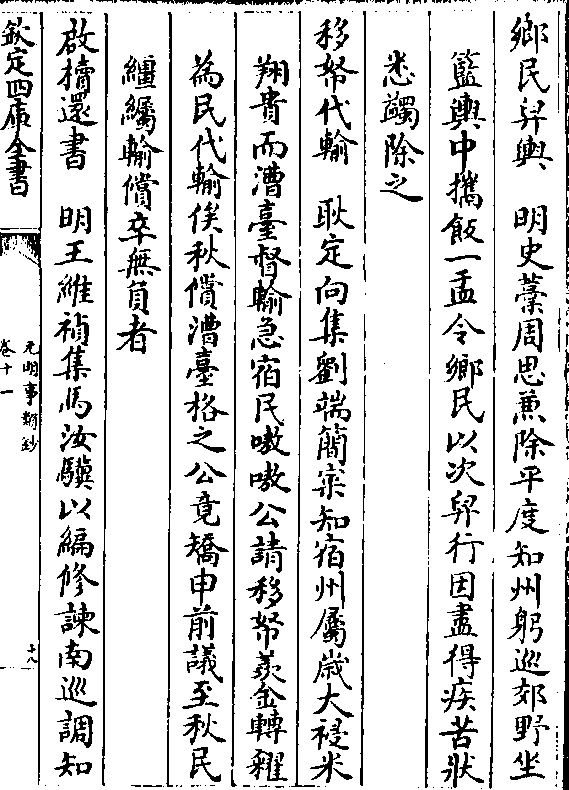 鄉民舁輿　明史藁周思兼除平度知州躬巡郊野坐
籃輿中攜飯一盂令鄉民以次舁行因盡得疾苦狀
悉蠲除之
移帑代輸　耿定向集劉端簡寀知宿州屬歲大祲米
翔貴而漕臺督輸急宿民嗷嗷公請移帑羡金轉糴
為民代輸俟秋償漕臺格之公竟矯申前議至秋民
繈屬輸償卒無負者
啟櫝還書　明王維禎集馬汝驥以編修諫南巡調知
欽定四庫全書
元明事類鈔
卷十一
十八